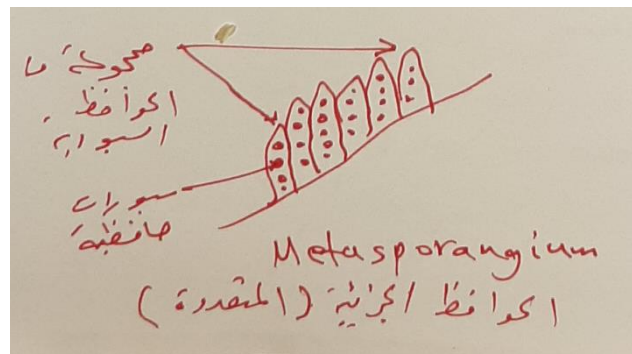 مجموعة من
الحوافظ
السبورية
سبورات
حافظية
Metasporangium
الحوافظ الجزئية (المتعددة)